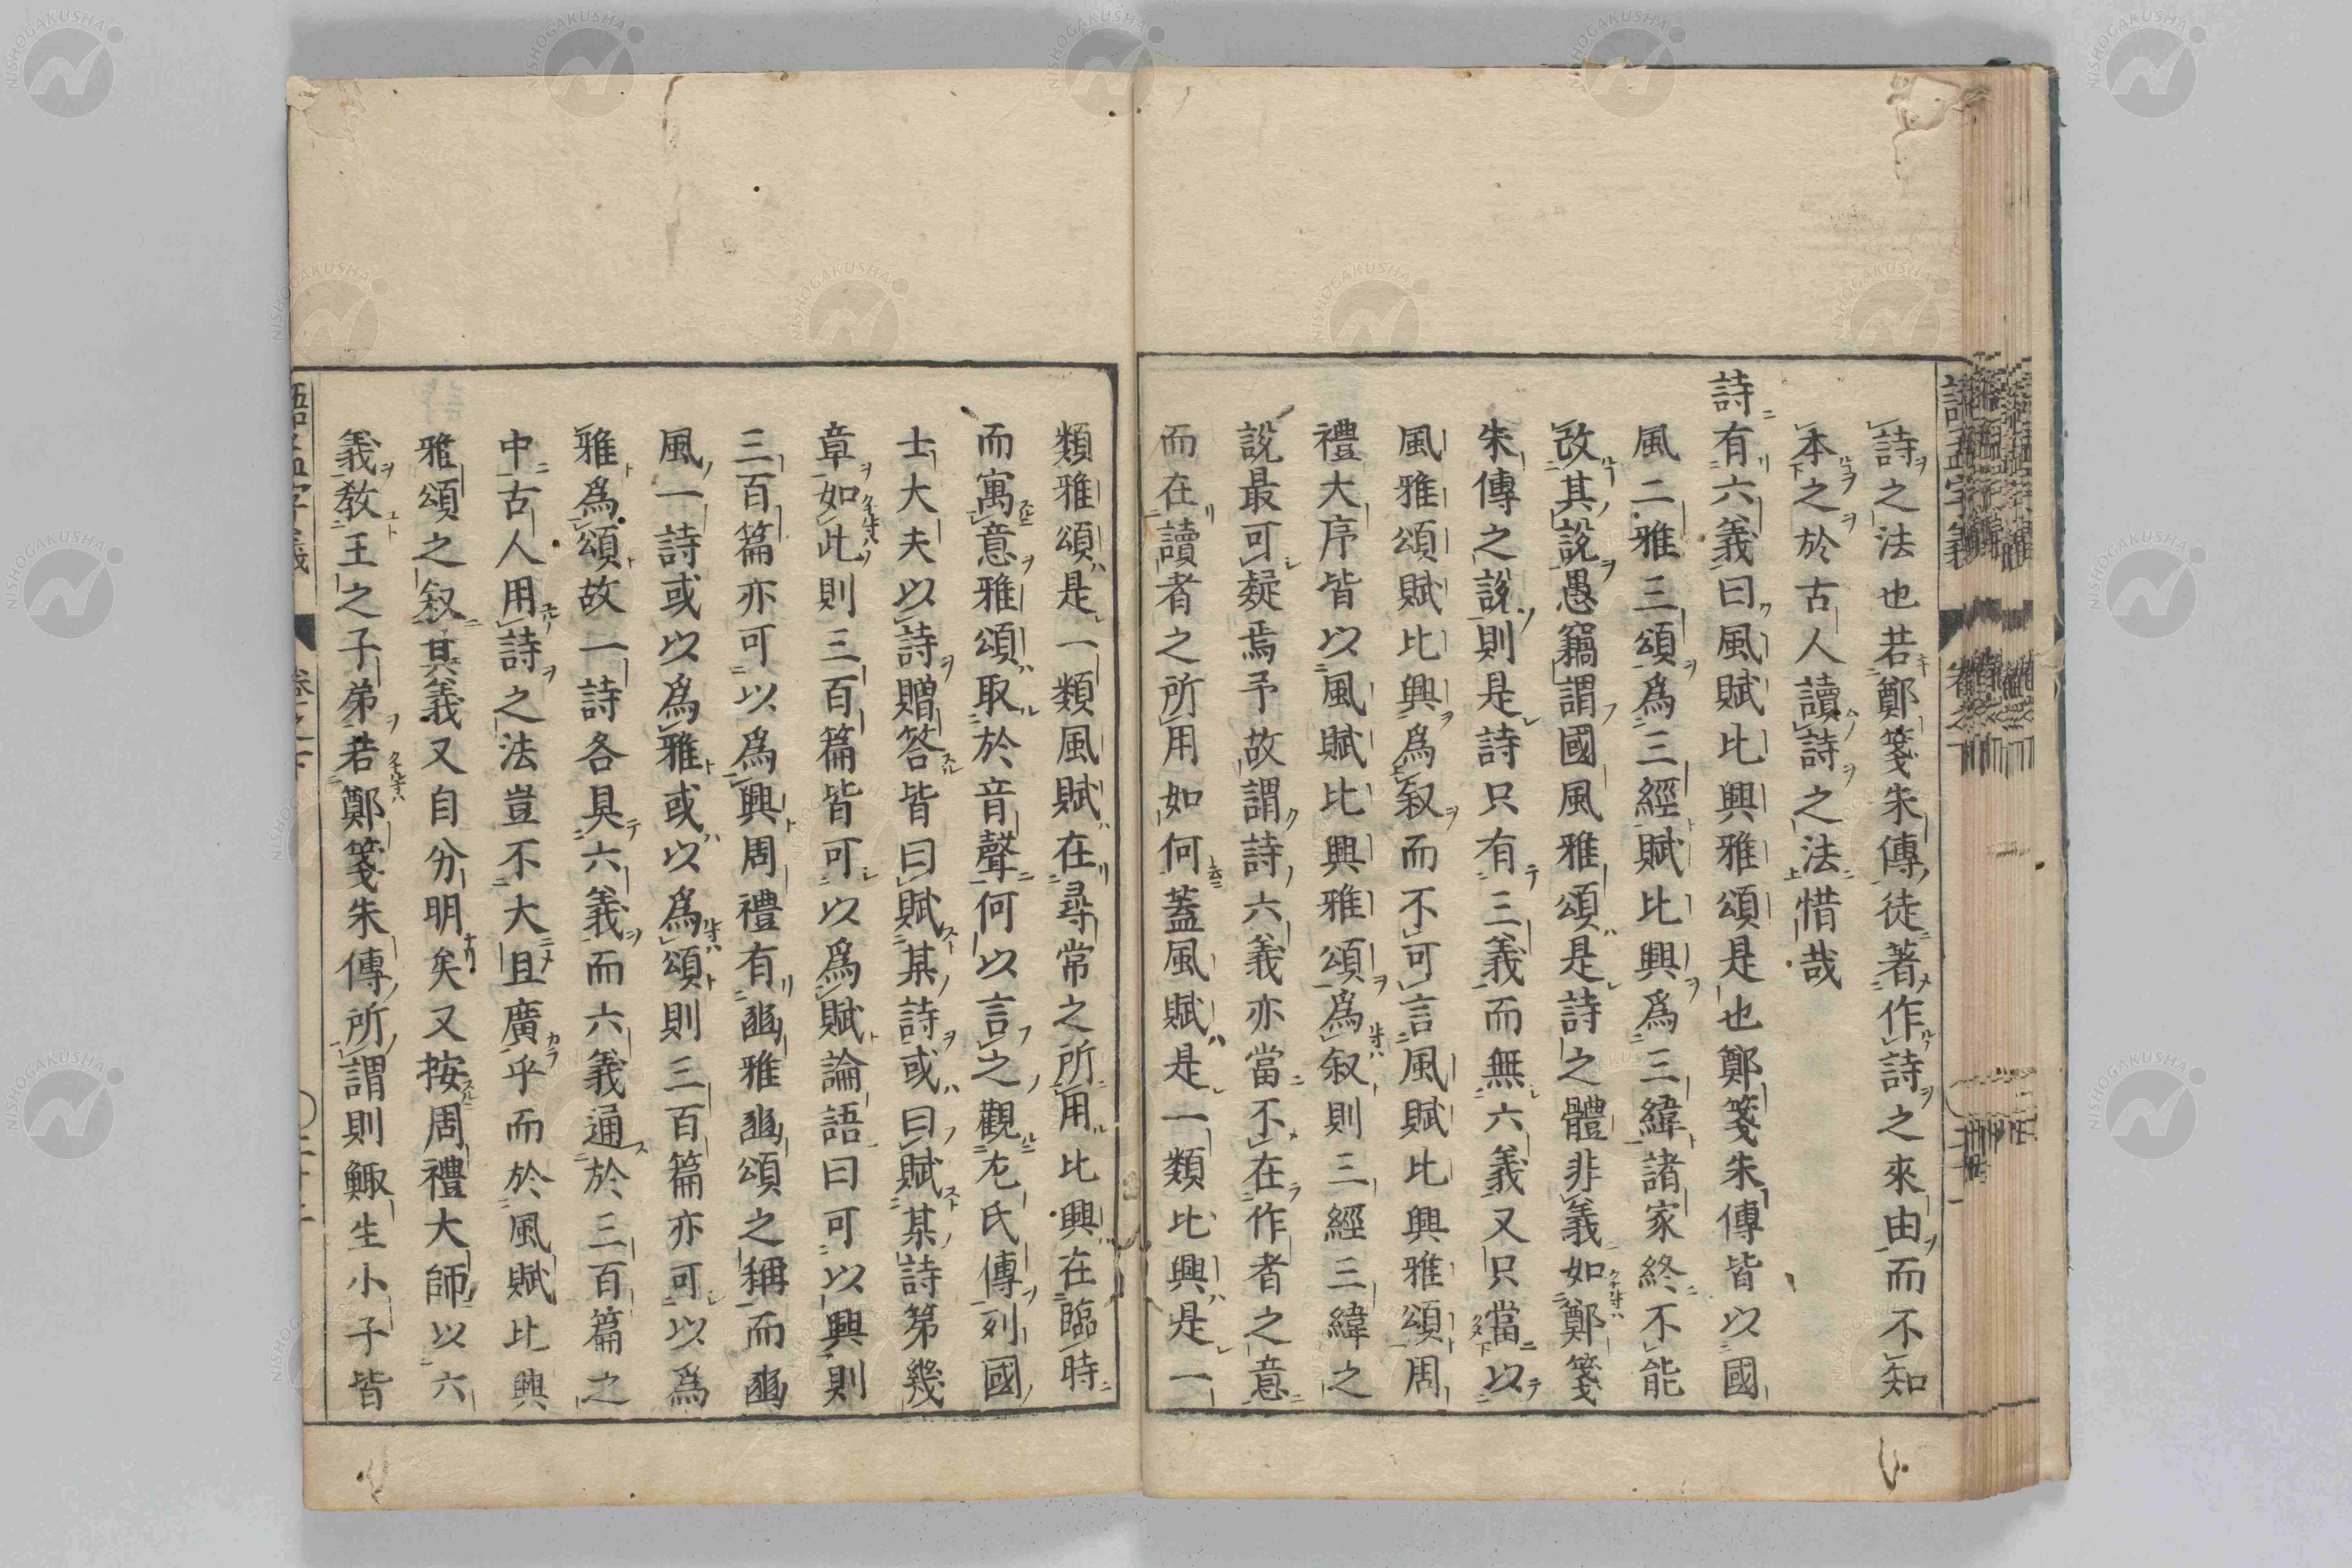 詩之法也若鄭箋朱傳徒著作詩之來由而不知
本之於古人讀詩之法惜哉
詩有六義曰風賦比興雅頌是也鄭箋朱傳皆以國
風二雅三頌爲三經賦比興爲三緯諸家終不能
改其說愚竊謂國風雅頌是詩之體非義如鄭箋
朱傳之說則是詩只有三義而無六義又只當以
風雅頌賦比興爲叙而不可言風賦比興雅頌周
禮大序皆以風賦比興雅頌爲叙則三經三緯之
說最可疑焉予故謂詩六義亦當不在作者之意
而在讀者之所用如何蓋風賦是一類比興是一
類雅頌是一類風賦在尋常之所用比興在臨時
而寓意雅頌取於音聲何以言之觀左氏傳列國
士大夫以詩贈答皆曰賦某詩或曰賦某詩第幾
章如此則三百篇皆可以爲賦論語曰可以興則
三百篇亦可以爲興周禮有豳雅豳頌之稱而豳
風一詩或以爲雅或以爲頌則三百篇亦可以爲
雅爲頌故一詩各具六義而六義通於三百篇之
中古人用詩之法豈不大且廣乎而於風賦比興
雅頌之叙其義又自分明矣又按周禮大師以六
義敎王之子弟若鄭箋朱傳所謂則鯫生小子皆